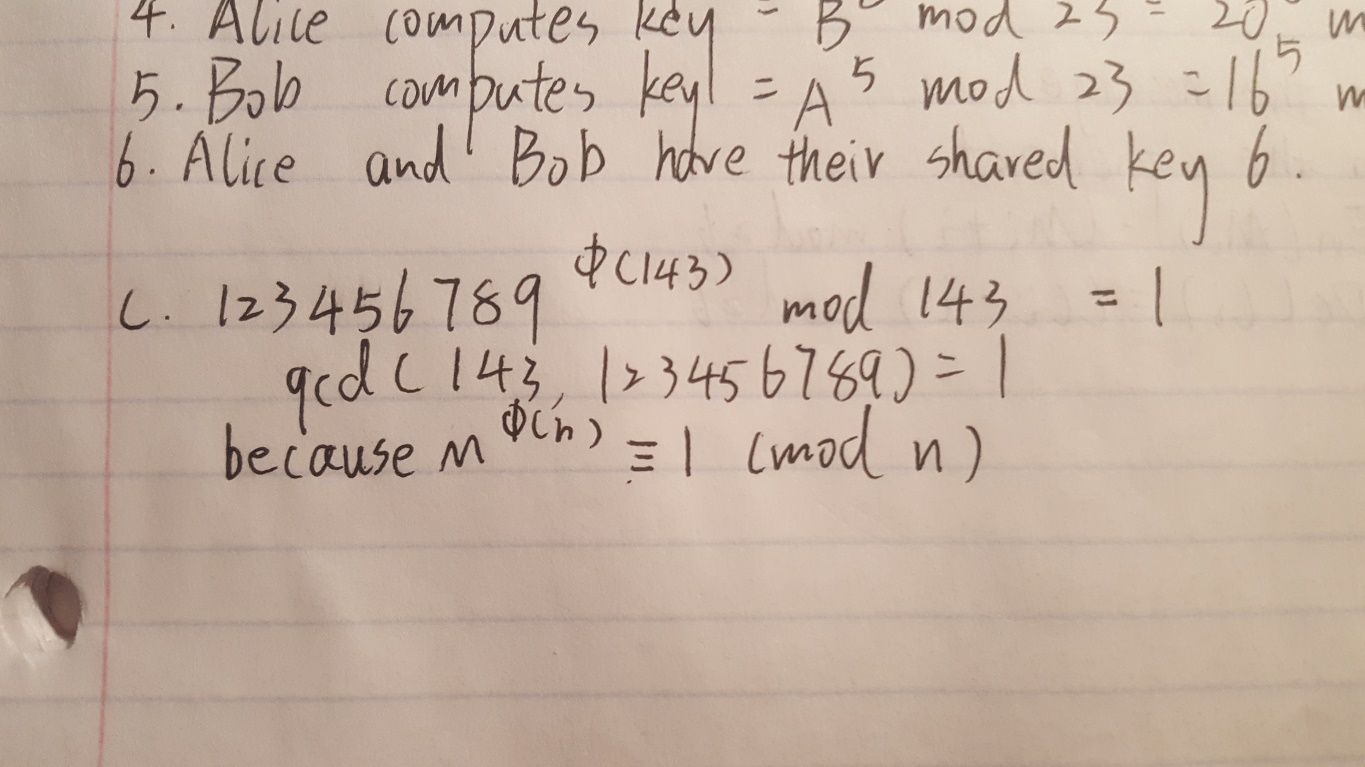 4. Alice computes key = B mod 23 = 20
5. Bob computes key = A^5 mod 23 = 16^5
6. Alice and Bob have their shared key 6.
C. 123456789^Φ(143) mod 143 = 1
gcd(143, 123456789) = 1
because M^Φ(n) ≡ 1 (mod n)